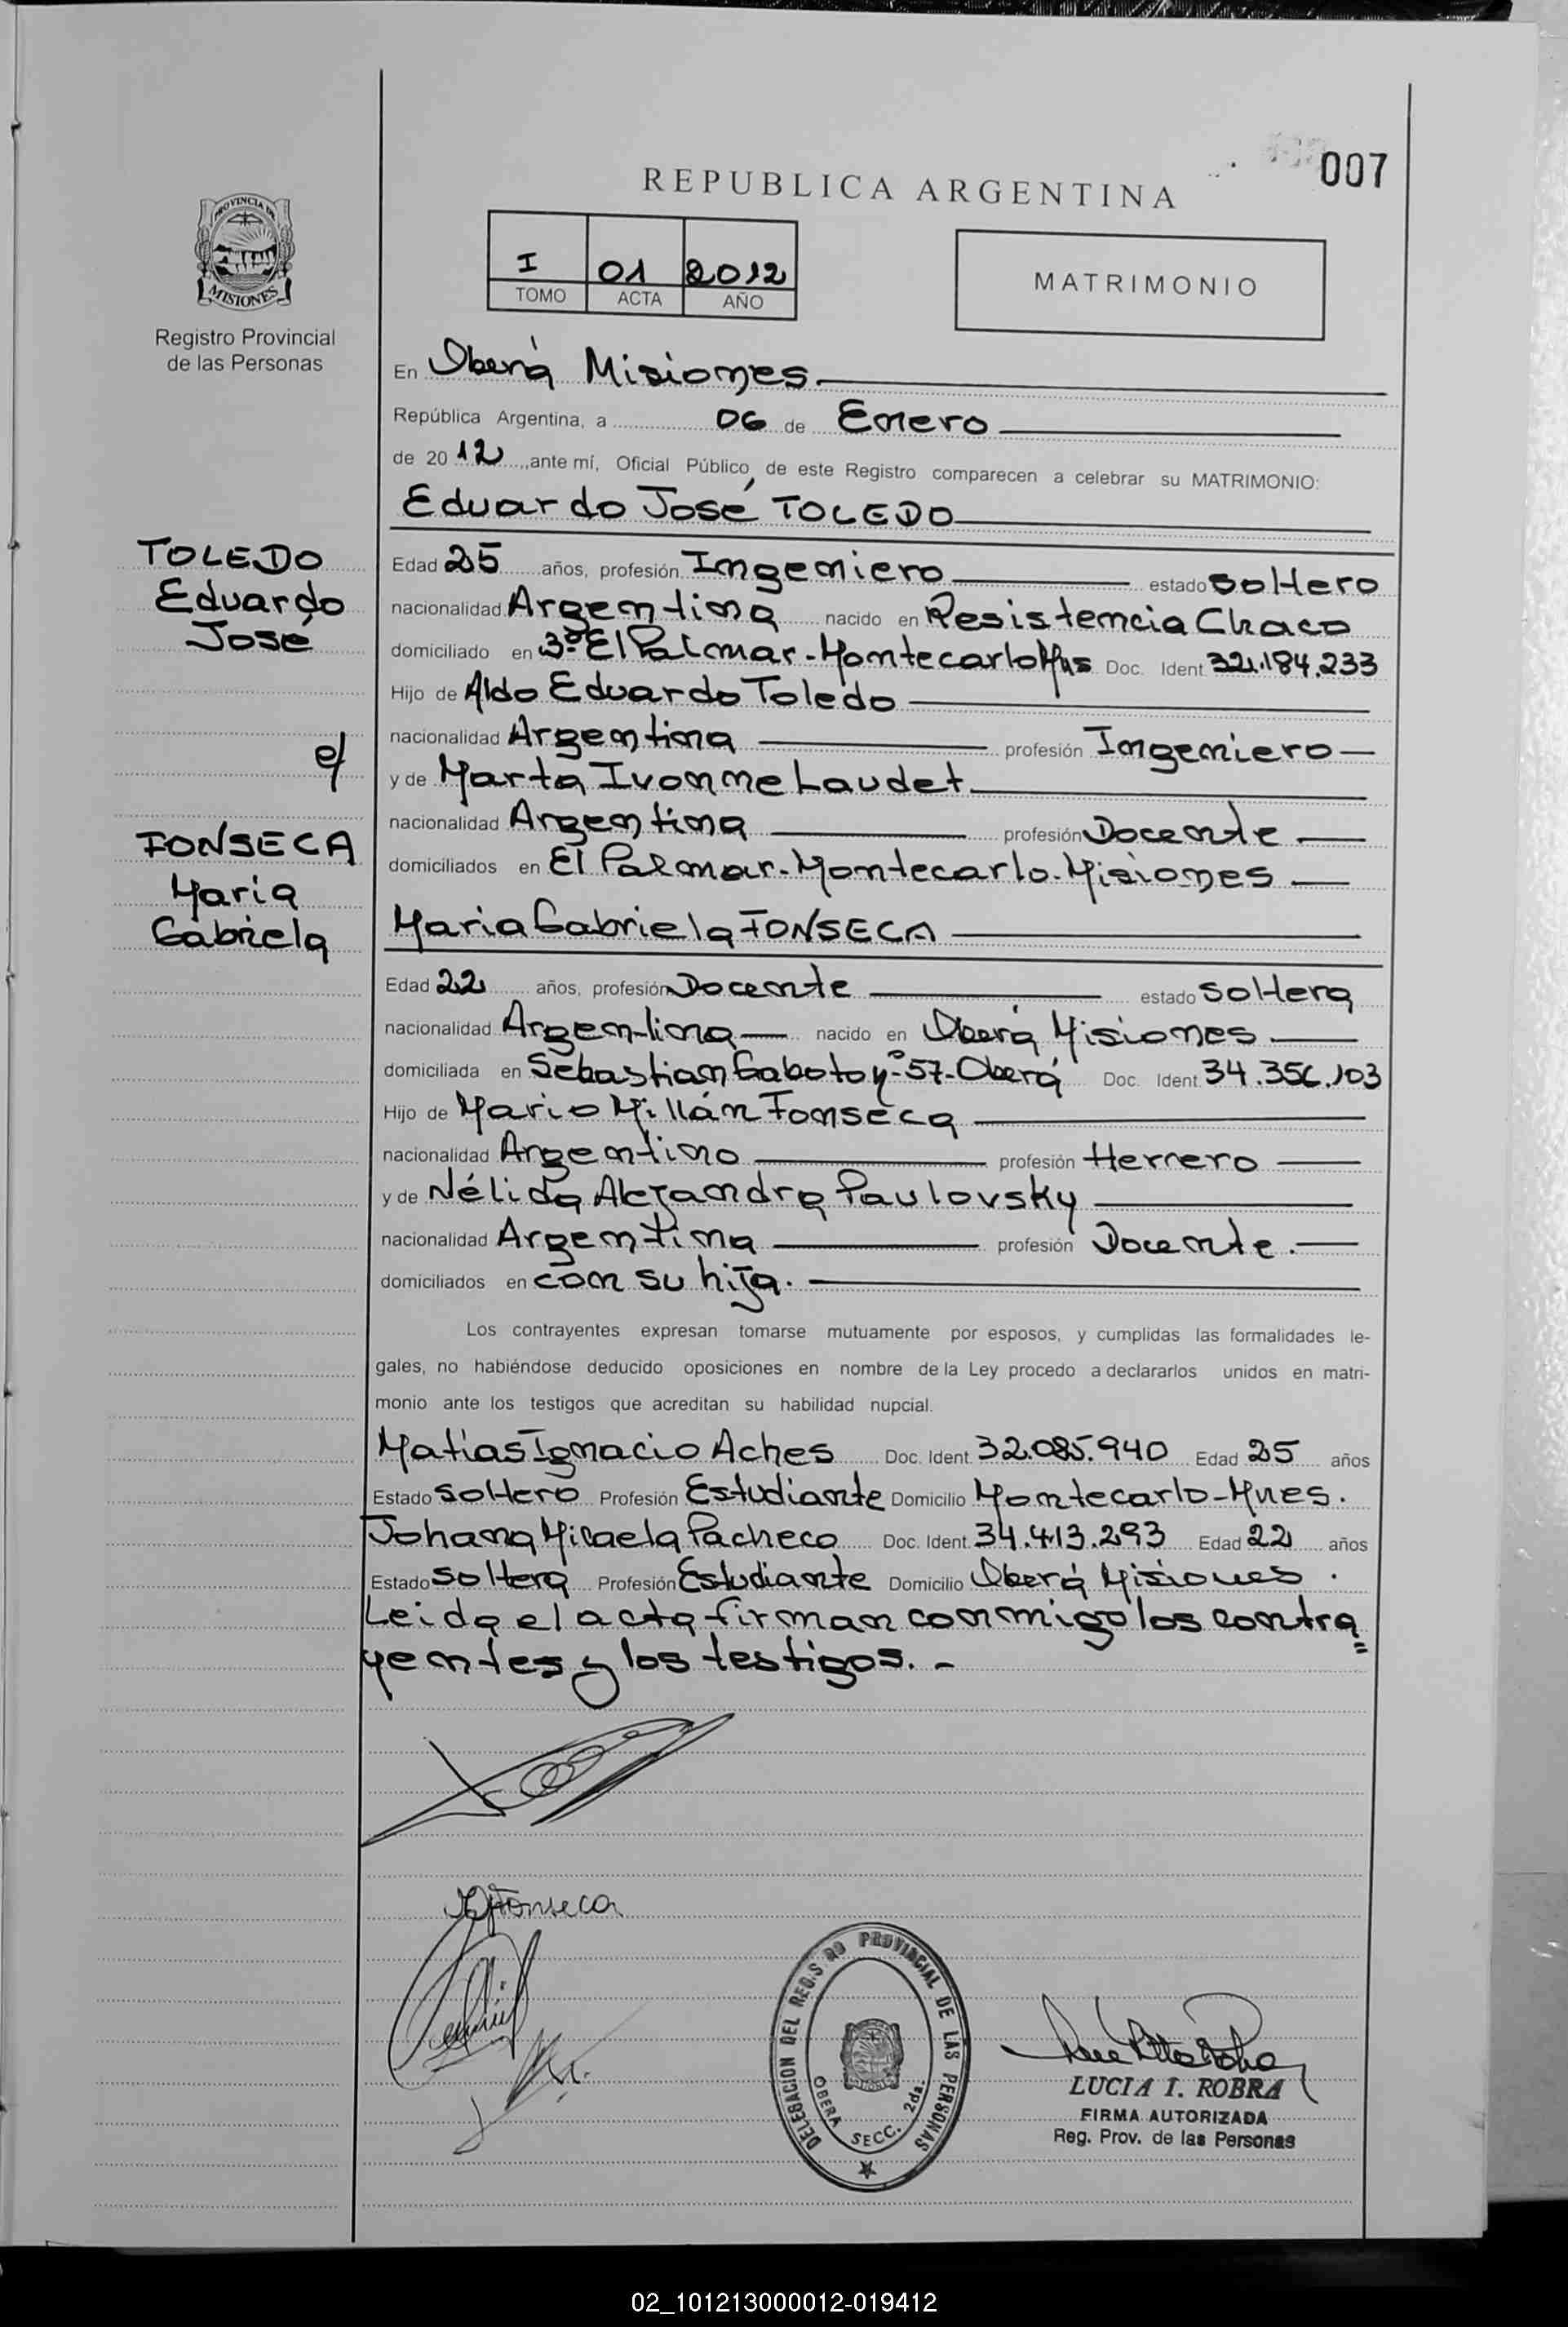 007
REPUBLICA ARGENTINA
PROVINCIA DE
MISIONES
Registro Provincial
de las Personas
I 01 2012
TOMO ACTA AÑO
MATRIMONIO
En Oberá Misiones
República Argentina, a 06 de Enero
de 2012, ante mí, Oficial Público, de este Registro comparecen a celebrar su MATRIMONIO:
Eduardo José TOLEDO
TOLEDO
Eduardo
José
c/
FONSECA
Maria
Gabriela
Edad 25 años, profesión Ingeniero estado soltero
nacionalidad Argentina nacido en Resistencia Chaco
domiciliado en 3º El Palmar-Montecarlo Mns Doc. Ident 32.184.233
Hijo de Aldo Eduardo Toledo
nacionalidad Argentina profesión Ingeniero
y de Marta Ivonne Laudet
nacionalidad Argentina profesión Docente
domiciliados en El Palmar-Montecarlo-Misiones
Maria Gabriela FONSECA
Edad 22 años, profesión Docente estado soltera
nacionalidad Argentina nacido en Oberá Misiones
domiciliada en Sebastian Gaboto nº 57-Oberá Doc. Ident 34.356.103
Hijo de Mario Millán Fonseca
nacionalidad Argentino profesión Herrero
y de Nélida Alejandra Paulovsky
nacionalidad Argentina profesión Docente.
domiciliados en con su hija.
Los contrayentes expresan tomarse mutuamente por esposos, y cumplidas las formalidades le-
gales, no habiéndose deducido oposiciones en nombre de la Ley procedo a declararlos unidos en matri-
monio ante los testigos que acreditan su habilidad nupcial.
Matías Ignacio Aches Doc. Ident. 32.085.940 Edad 25 años
Estado soltero Profesión Estudiante Domicilio Montecarlo-Mnes.
Johana Micaela Pacheco Doc. Ident. 34.413.293 Edad 22 años
Estado soltera Profesión Estudiante Domicilio Oberá Misiones.
Leida el acta firman conmigo los contra=
yentes y los testigos.-
Fonseca
DELEGACION DEL REGISTRO PROVINCIAL DE LAS PERSONAS
OBERA SECC. 2da.
LUCIA I. ROBRA
FIRMA AUTORIZADA
Reg. Prov. de las Personas
02_101213000012-019412